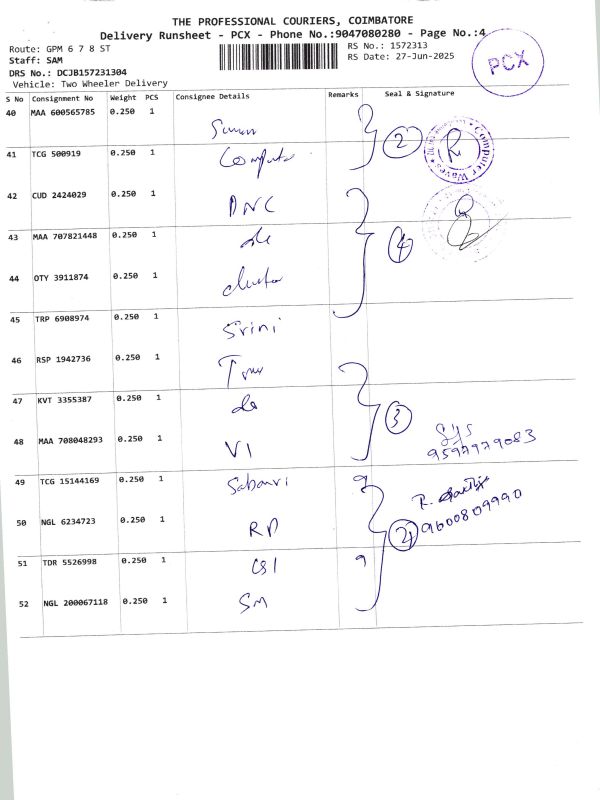 THE PROFESSIONAL COURIERS, COIMBATORE
Delivery Runsheet - PCX - Phone No.:9047080280 - Page No.:4
Route: GPM 6 7 8 ST
RS No.: 1572313
Staff: SAM
RS Date: 27-Jun-2025
DRS No.: DCJB157231304
Vehicle: Two Wheeler Delivery
PCX
S No Consignment No Weight PCS Consignee Details Remarks Seal & Signature
40 MAA 600565785 0.250 1
41 TCG 500919 0.250 1
② R
Computer Waves
42 CUD 2424029 0.250 1 DNC
43 MAA 707821448 0.250 1
④
44 OTY 3911874 0.250 1
45 TRP 6908974 0.250 1 Srini
46 RSP 1942736 0.250 1
47 KVT 3355387 0.250 1
③
48 MAA 708048293 0.250 1 VI
9597979083
49 TCG 15144169 0.250 1 Sabari
9600809990
50 NGL 6234723 0.250 1 RD
51 TDR 5526998 0.250 1 CSI
52 NGL 200067118 0.250 1 SM